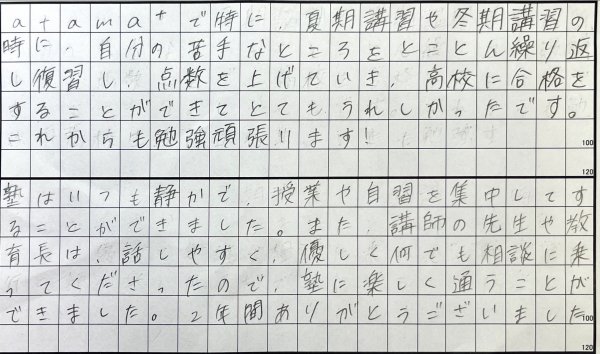 atama+で特に、夏期講習や冬期講習の
時に、自分の苦手なところをとことん繰り返
し復習し、点数を上げていき、高校に合格を
することができてとてもうれしかったです。
これからも勉強頑張ります!
100
120
塾はいつも静かで、授業や自習を集中してす
ることができました。また、講師の先生や教
育長は、話しやすく、優しく何でも相談に乗
ってくださったので、塾に楽しく通うことが
できました。2年間ありがとうございました
100
120